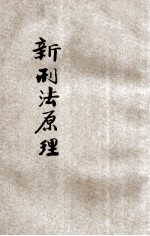 新刑法原理